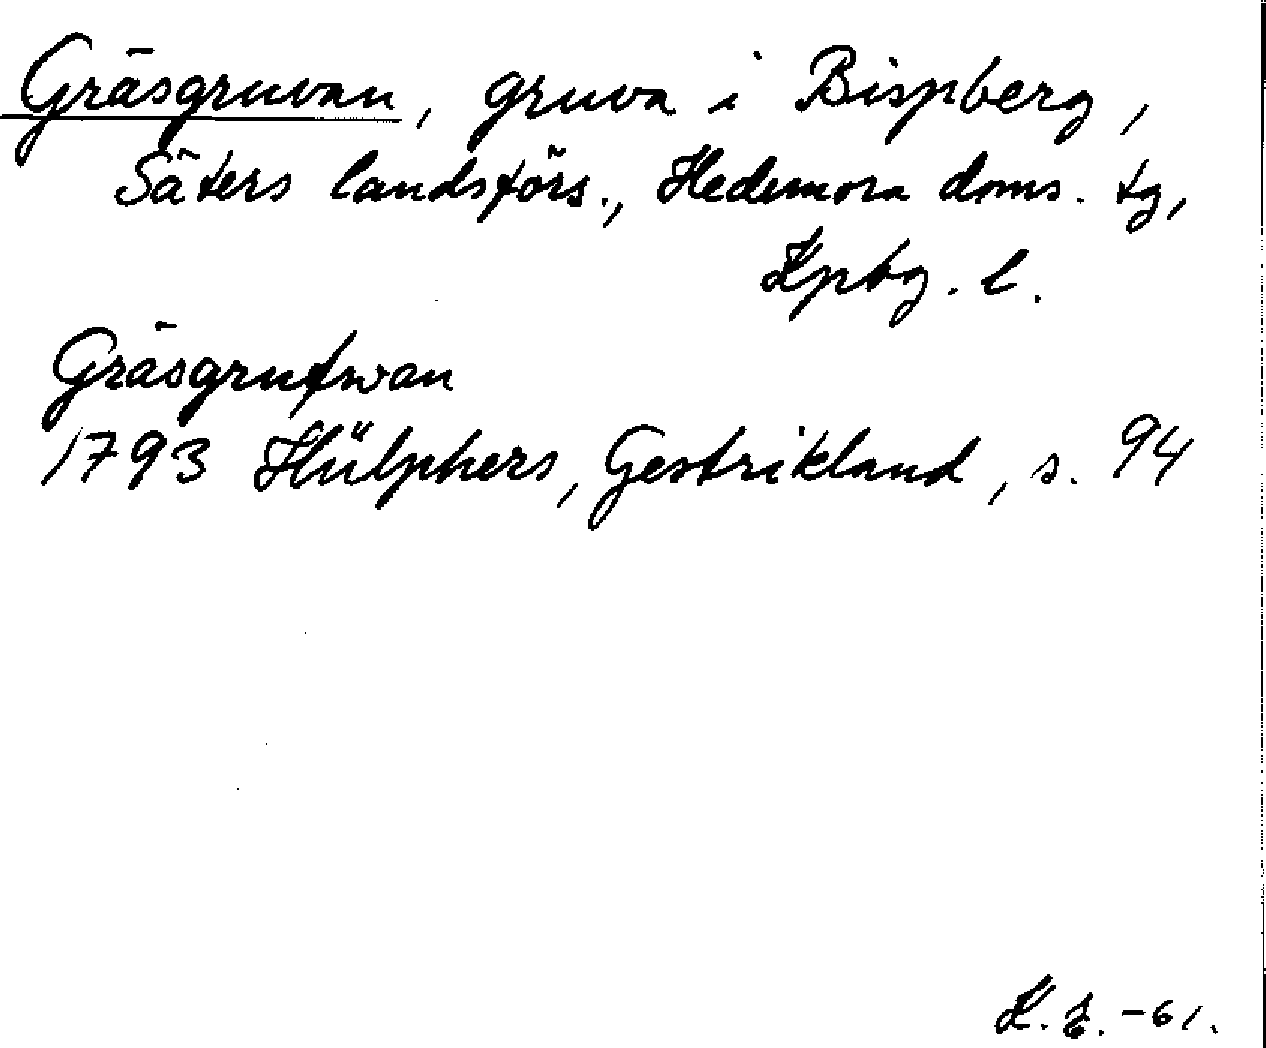 Gräsgruvan, gruva i Bispberg,
Säters landsförs., Hedemora doms. tg,
Kpbg. l.
Gräsgrufwan
1793 Hülphers, Gestrikland, s. 94
-61.